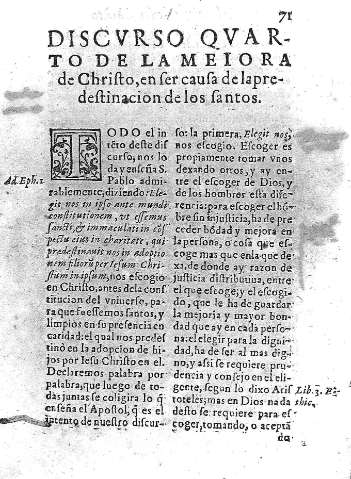 71
DISCVRSO QVAR-
TO DE LA MEIORA
de Christo, en ser causa de la pre-
destinacion de los santos.
TODO el in
tẽto deste dis
curso, nos lo
da y enseña S.
Ad Eph. 1.
Pablo admi-
rablemente, diziendo: Ele-
git nos in ipso ante mundi
constitutionem, vt essemus
sancti, & immaculati in cons-
pectu eius in charitate, qui
predestinauit nos in adoptio
nem filiorũ per Iesum Chri-
stum in ipsum, nos escogio
en Christo, antes de la cons
titucion del vniuerso, pa-
ra que fuessemos santos, y
limpios en su presencia en
caridad: el qual nos predes
tinó en la adopcion de hi-
jos por Iesu Christo en el.
Declaremos palabra por
palabra, que luego de to-
das juntas se coligira lo q̃
enseña el Apostol, q̃ es el
intento de nuestro discur-
so: la primera, Elegit nos,
nos escogio. Escoger es
propiamente tomar vnos
dexando otros, y ay en-
tre el escoger de Dios, y
de los hombres esta dife-
rencia: para escoger el hõ-
bre sin injusticia, ha de pre
ceder bõdad y mejora en
la persona, o cosa que es-
coge mas que en la que de-
xa, de donde ay razon de
justicia distributiua, entre
el que escoge, y el escogi-
do, que le ha de guardar
la mejoria y mayor bon-
dad que ay en cada perso-
na: el elegir para la digni-
dad, ha de ser al mas dig-
no, y assi se requiere pru-
dencia y consejo en el eli-
gente, segun lo dixo Aris
Lib. 3. Et-
toteles; mas en Dios nada
hic.
desto se requiere para es-
coger, tomando, o acepta
do